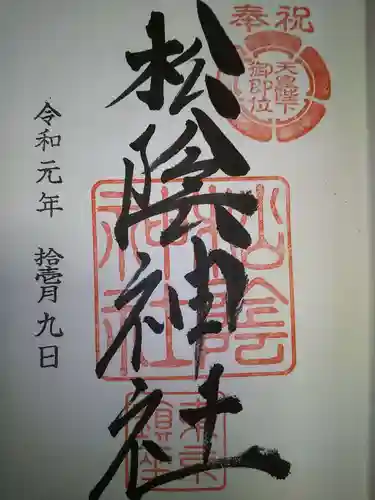 奉祝
天皇陛下
御即位
松陰神社
松陰
神社
令和元年 拾壱月 九日